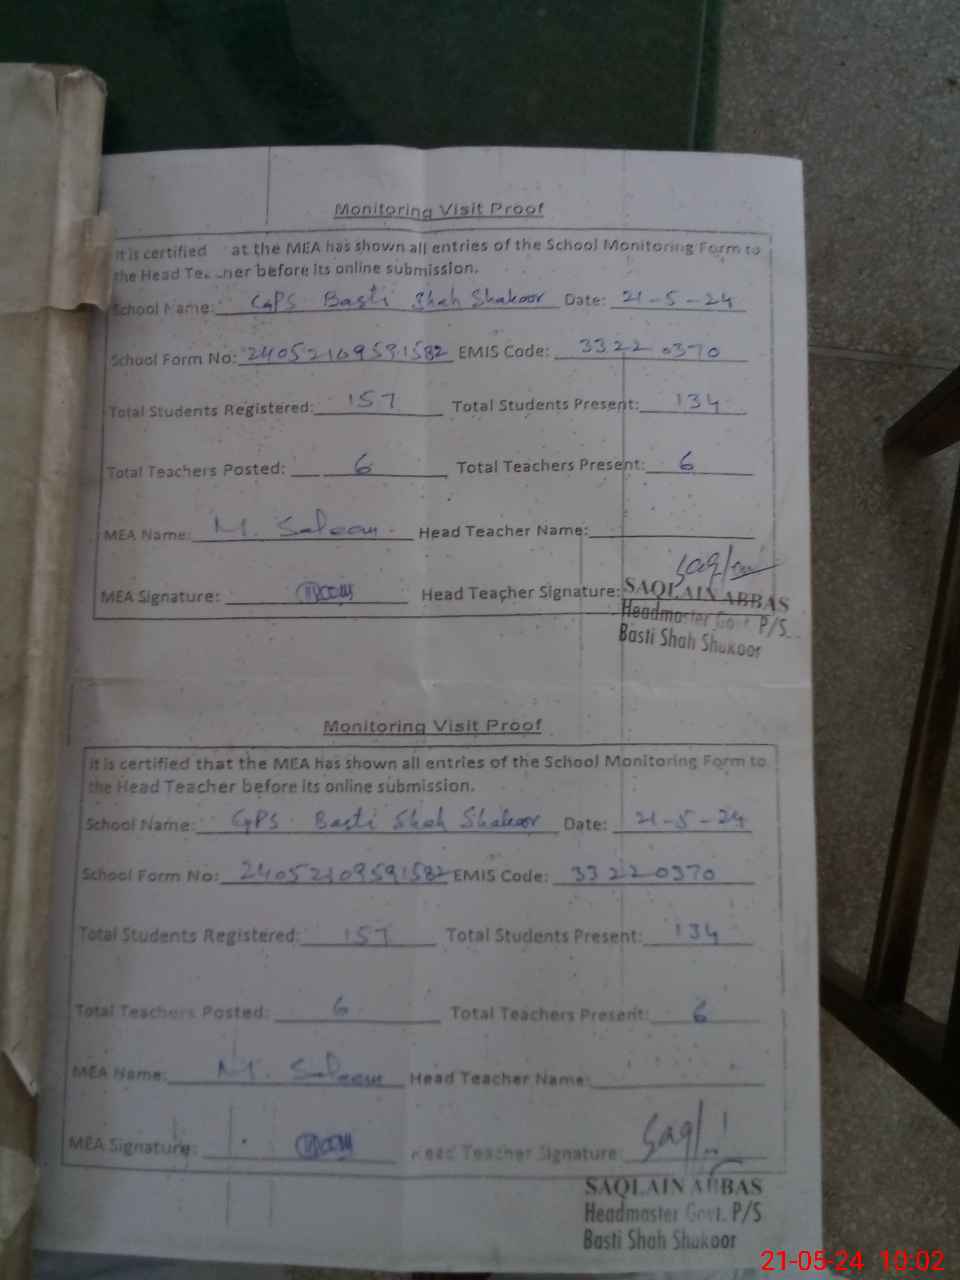 Monitoring Visit Proof
It is certified at the MEA has shown all entries of the School Monitoring Form to
the Head Te cher before its online submission.
School Name: GPS Basti Shah Shakoor Date: 21-5-24
School Form No: 24052109591582 EMIS Code: 33220370
Total Students Registered: 157 Total Students Present: 134
Total Teachers Posted: 6 Total Teachers Present: 6
MEA Name: M. Saleem Head Teacher Name:
MEA Signature: Head Teacher Signature:
SAQLAIN ABBAS
Headmaster Govt. P/S
Basti Shah Shakoor
Monitoring Visit Proof
It is certified that the MEA has shown all entries of the School Monitoring Form to
the Head Teacher before its online submission.
School Name: GPS Basti Shah Shakoor Date: 21-5-24
School Form No: 24052109591582 EMIS Code: 33220370
Total Students Registered: 157 Total Students Present: 134
Total Teachers Posted: 6 Total Teachers Present: 6
MEA Name: M. Saleem Head Teacher Name:
MEA Signature: Head Teacher Signature:
SAQLAIN ABBAS
Headmaster Govt. P/S
Basti Shah Shakoor
21-05-24 10:02